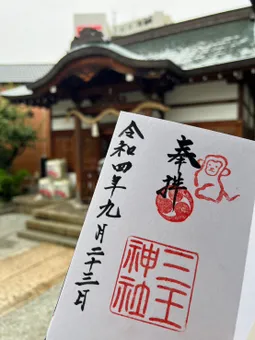 奉拝
三王神社
令和四年九月二十三日